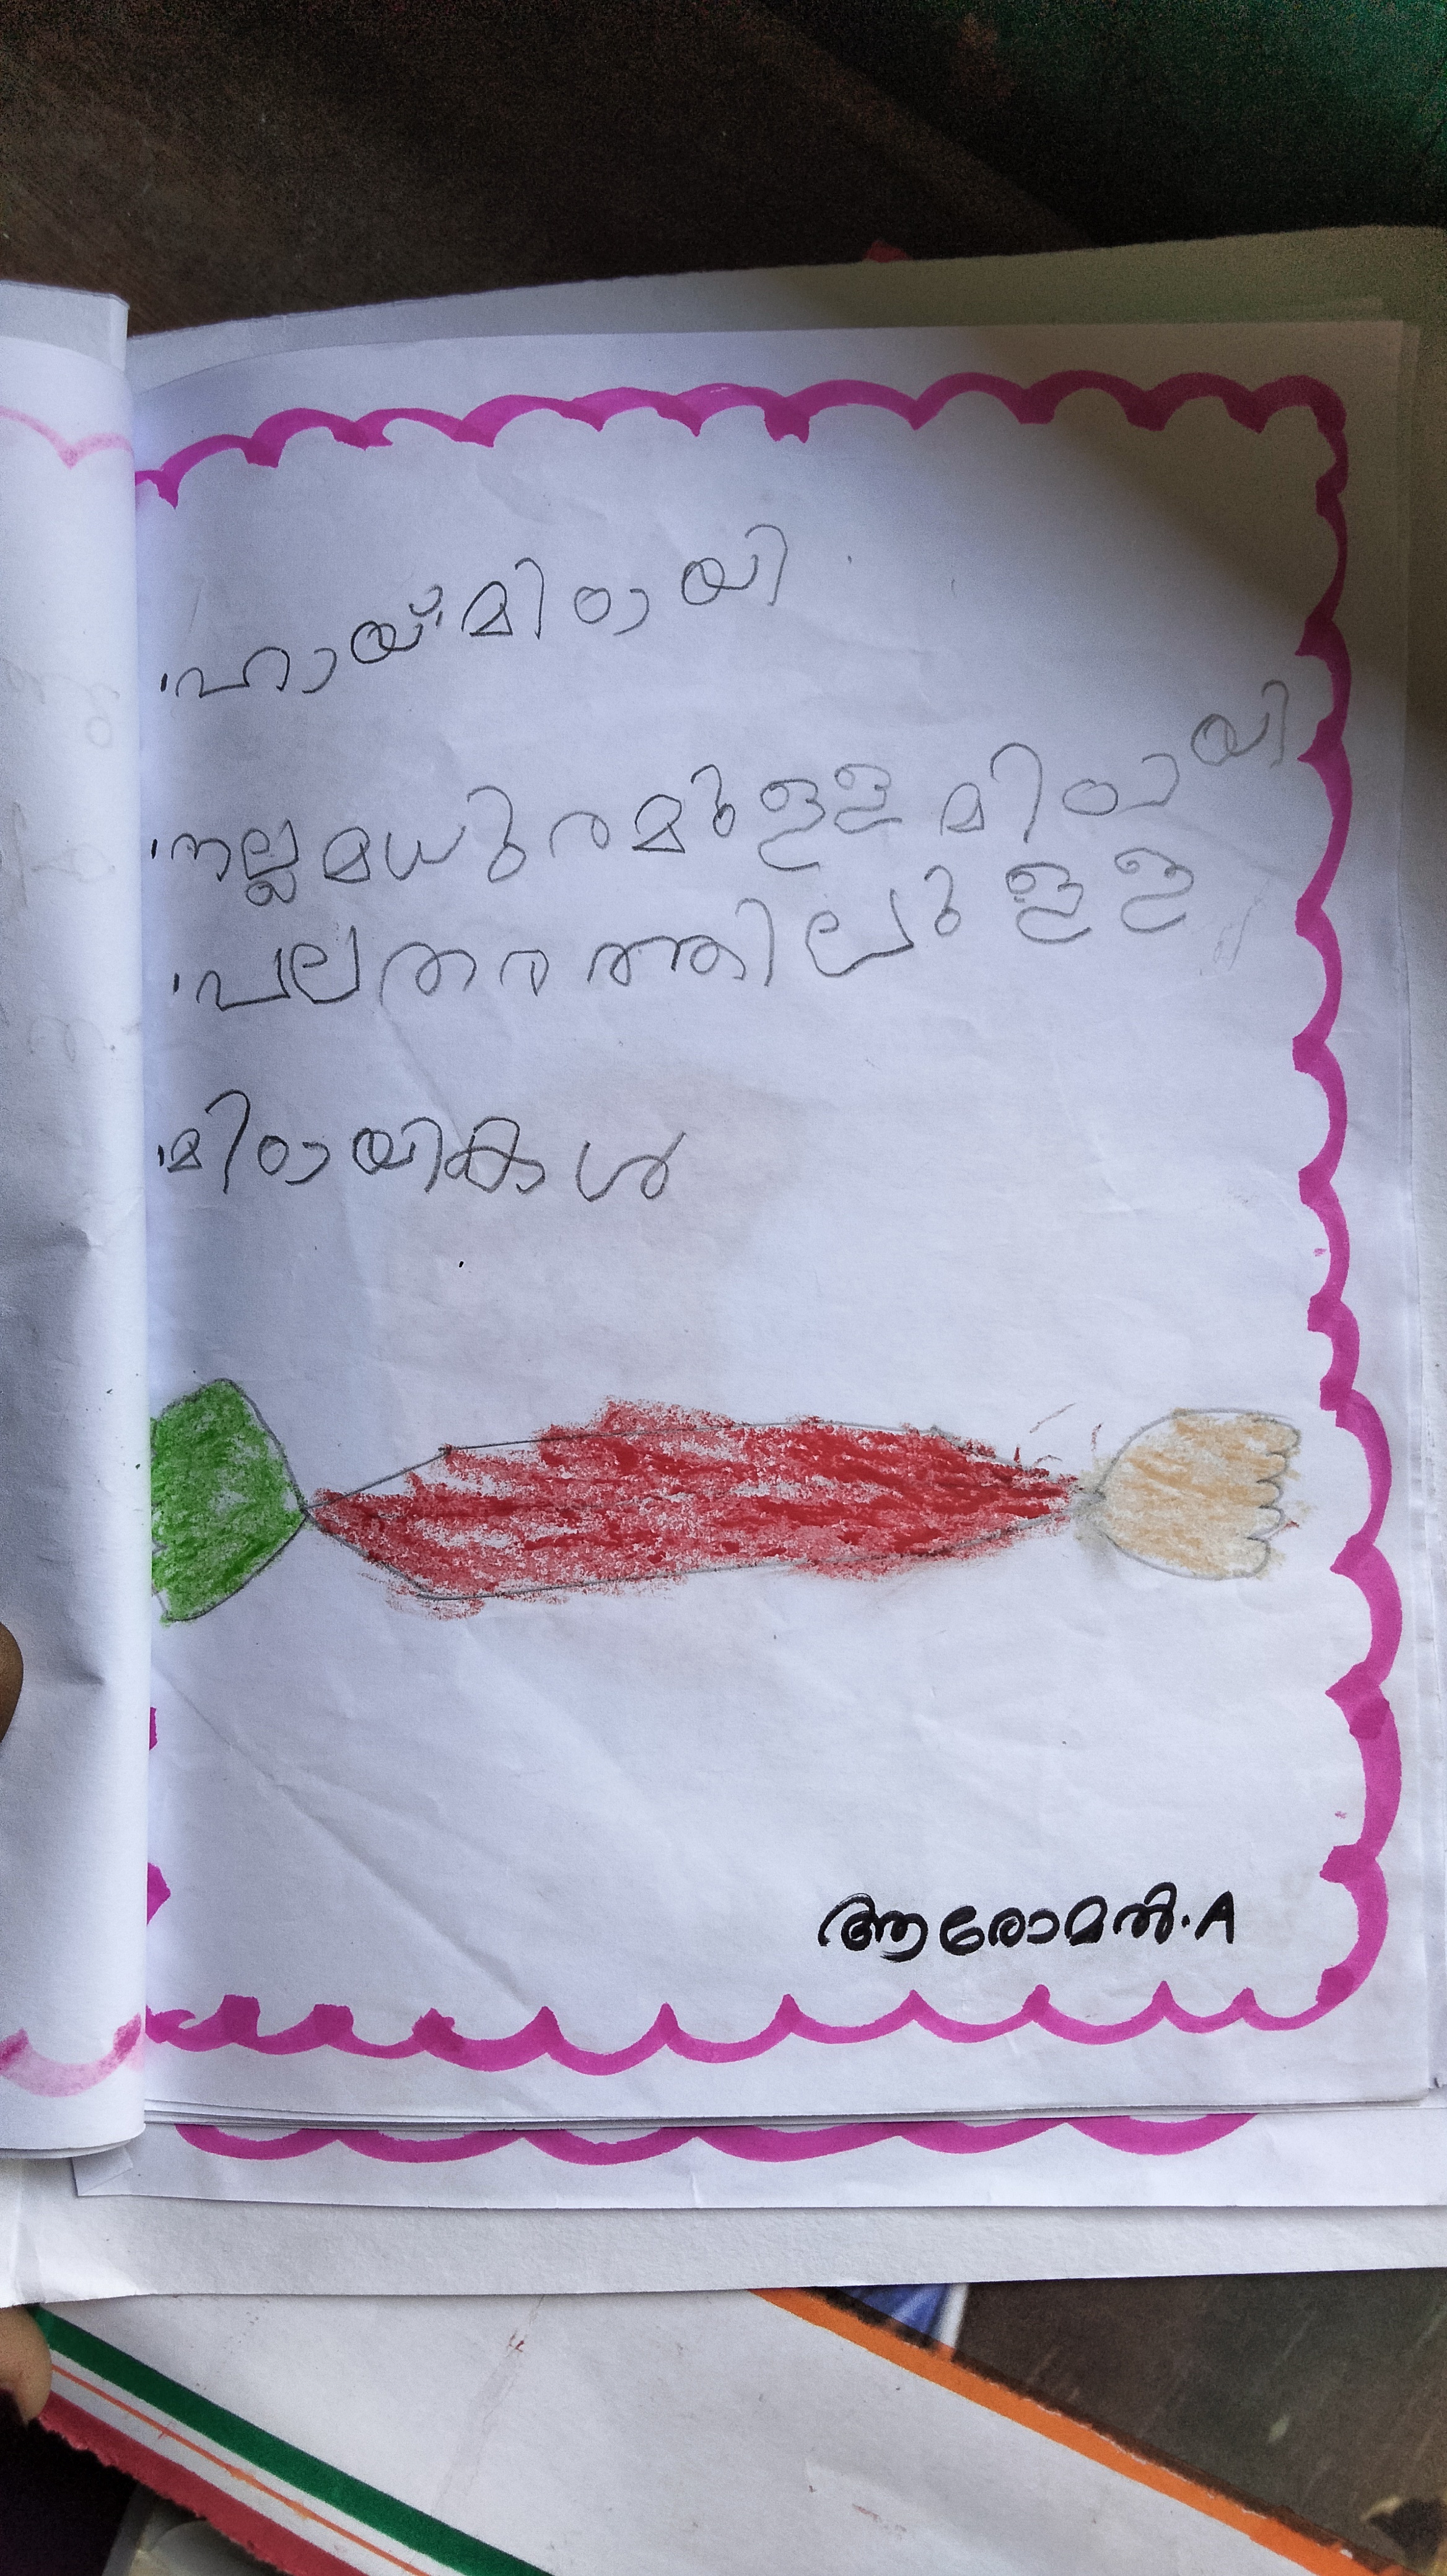 ഹായ് മിഠായി
നല്ല മധുരമുള്ള മിഠായി
പലതരത്തിലുള്ള
മിഠായികൾ
ആരോമൽ. A